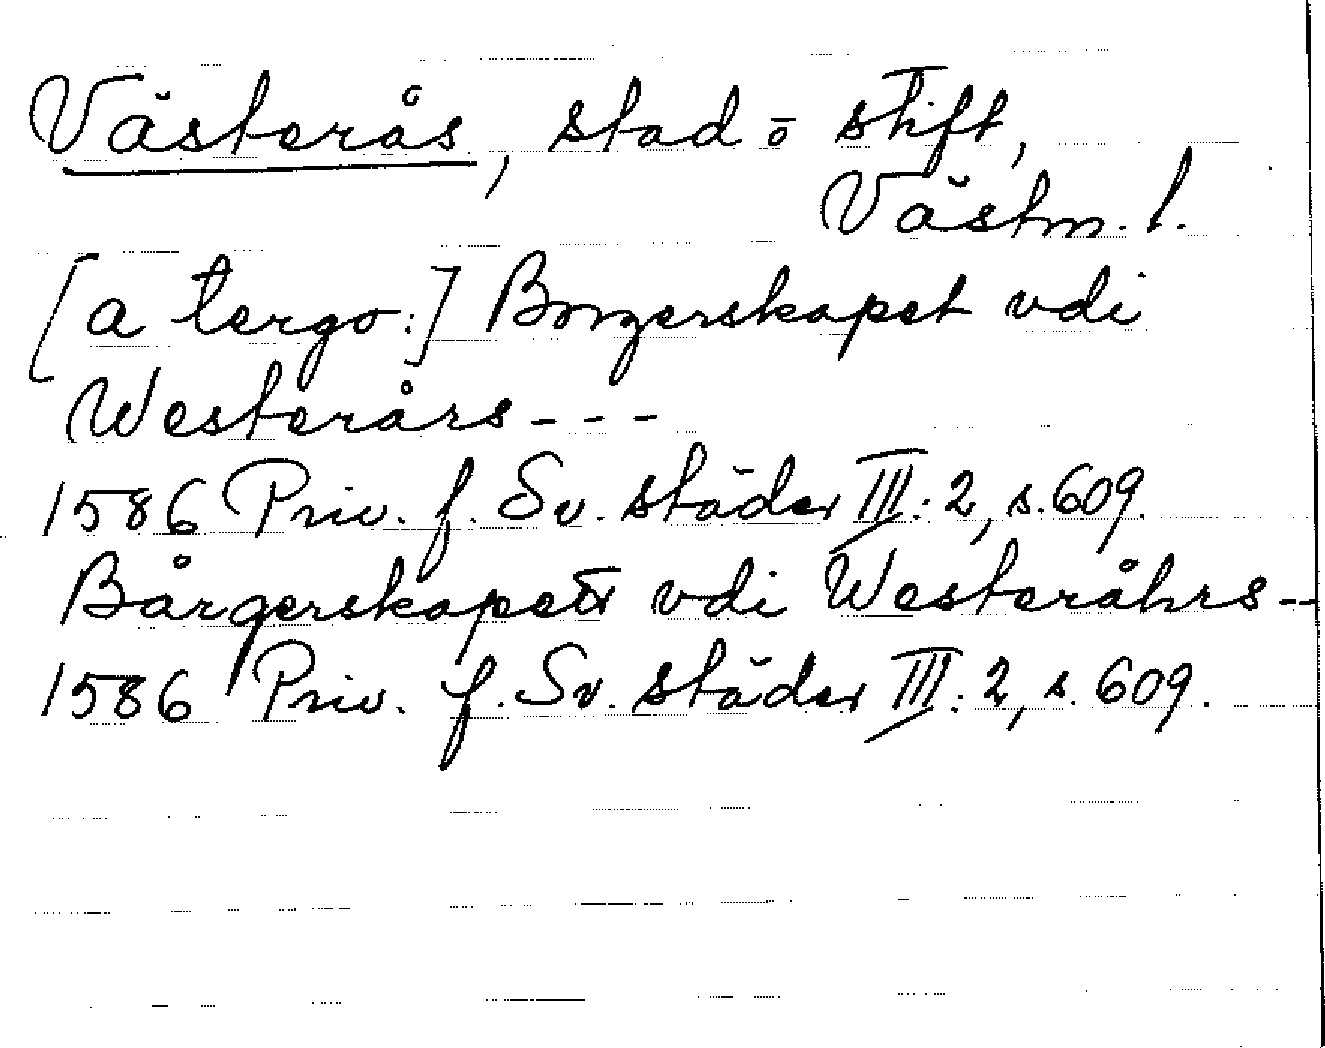 Västerås, stad o stift,
Västm. l.
[a tergo:] Borgerskapet vdi
Westerårs - - -
1586 Priv. f. Sv. städer III: 2, s. 609.
Bårgerskapett vdi Westeråhrs - -
1586 Priv. f. Sv. städer III: 2, s. 609.